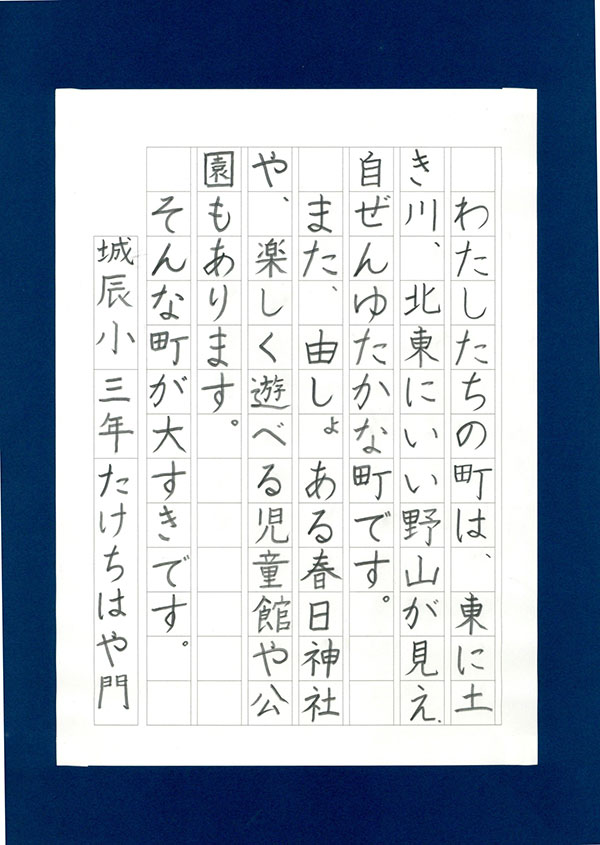 わたしたちの町は、東に土
き川、北東にいい野山が見え、
自ぜんゆたかな町です。
また、由しょある春日神社
や、楽しく遊べる児童館や公
園もあります。
そんな町が大すきです。
城辰小三年たけちはや門